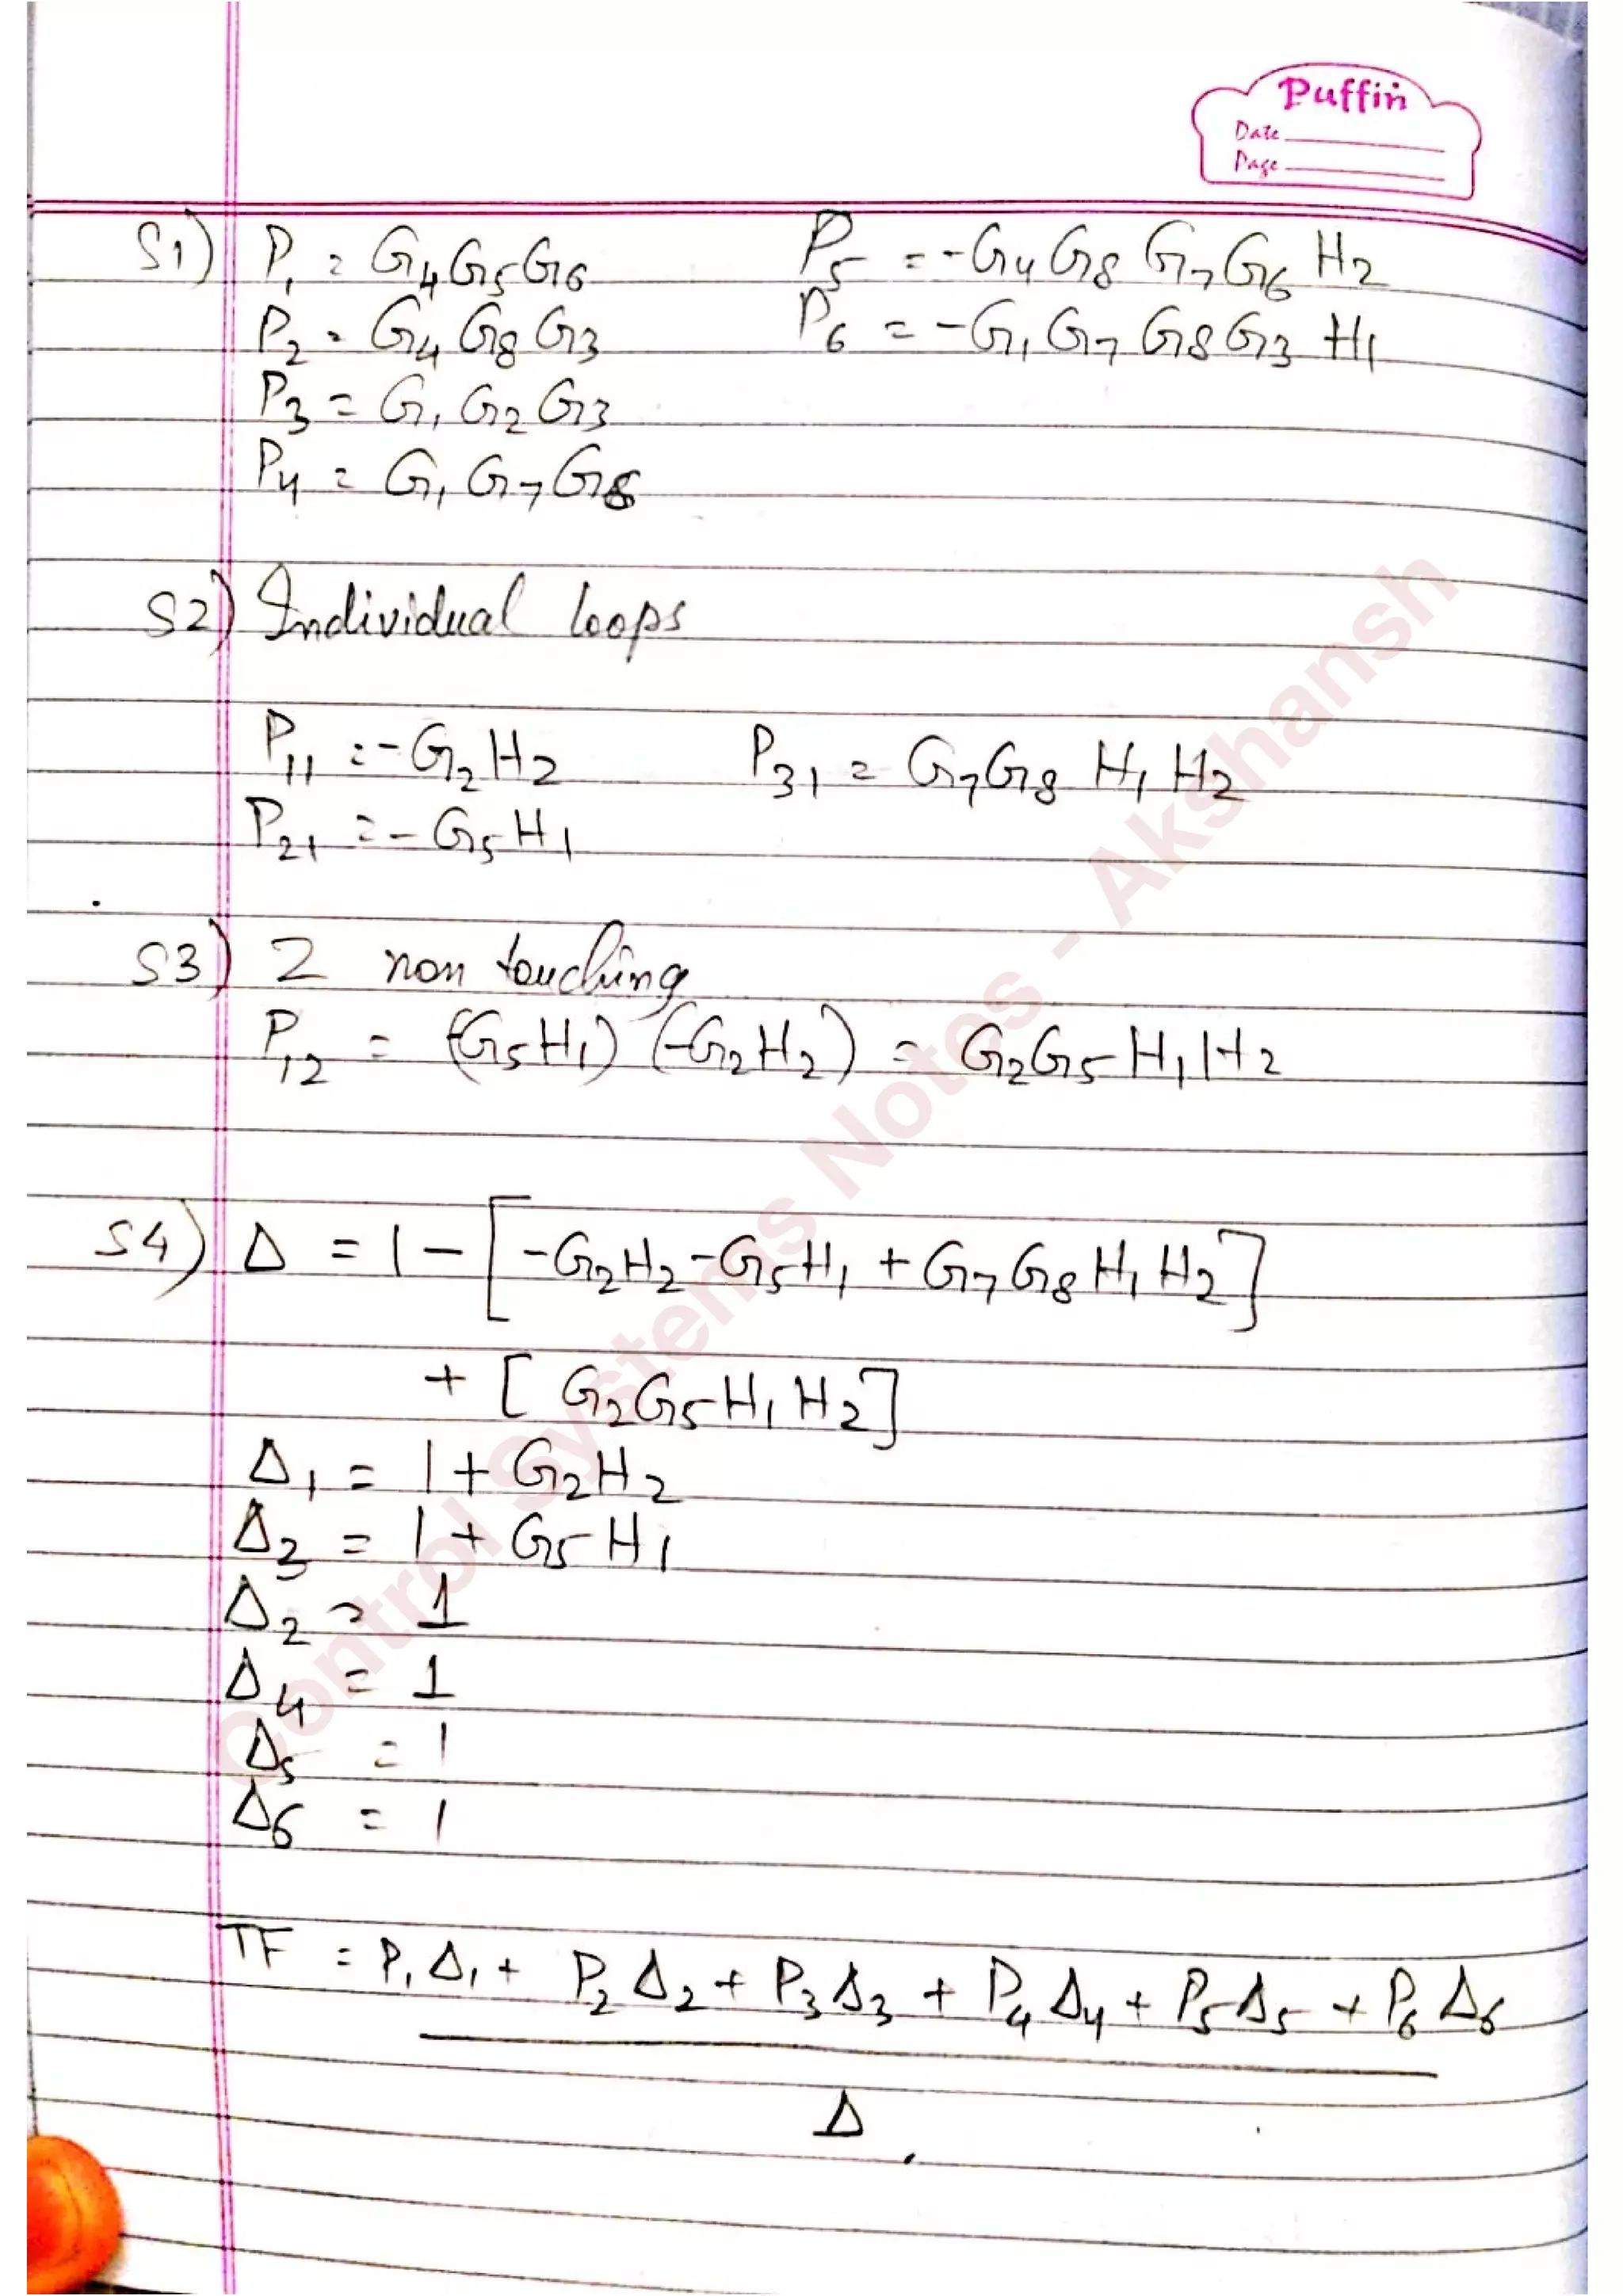 Puffin
Date
Page
S1) P₁ = G₄G₅G₆ P₅ = -G₄G₈G₇G₆H₂
P₂ = G₄G₈G₃ P₆ = -G₁G₇G₈G₃H₁
P₃ = G₁G₂G₃
P₄ = G₁G₇G₆
S2) Individual loops
P₁₁ = -G₂H₂ P₃₁ = G₇G₈H₁H₂
P₂₁ = -G₅H₁
S3) 2 non touching
P₁₂ = (-G₅H₁)(-G₂H₂) = G₂G₅H₁H₂
S4) Δ = 1 - [-G₂H₂ - G₅H₁ + G₇G₈H₁H₂]
+ [G₂G₅H₁H₂]
Δ₁ = 1 + G₂H₂
Δ₃ = 1 + G₅H₁
Δ₂ = 1
Δ₄ = 1
Δ₅ = 1
Δ₆ = 1
TF = P₁Δ₁ + P₂Δ₂ + P₃Δ₃ + P₄Δ₄ + P₅Δ₅ + P₆Δ₆
Δ
Control Systems Notes - Akshansh